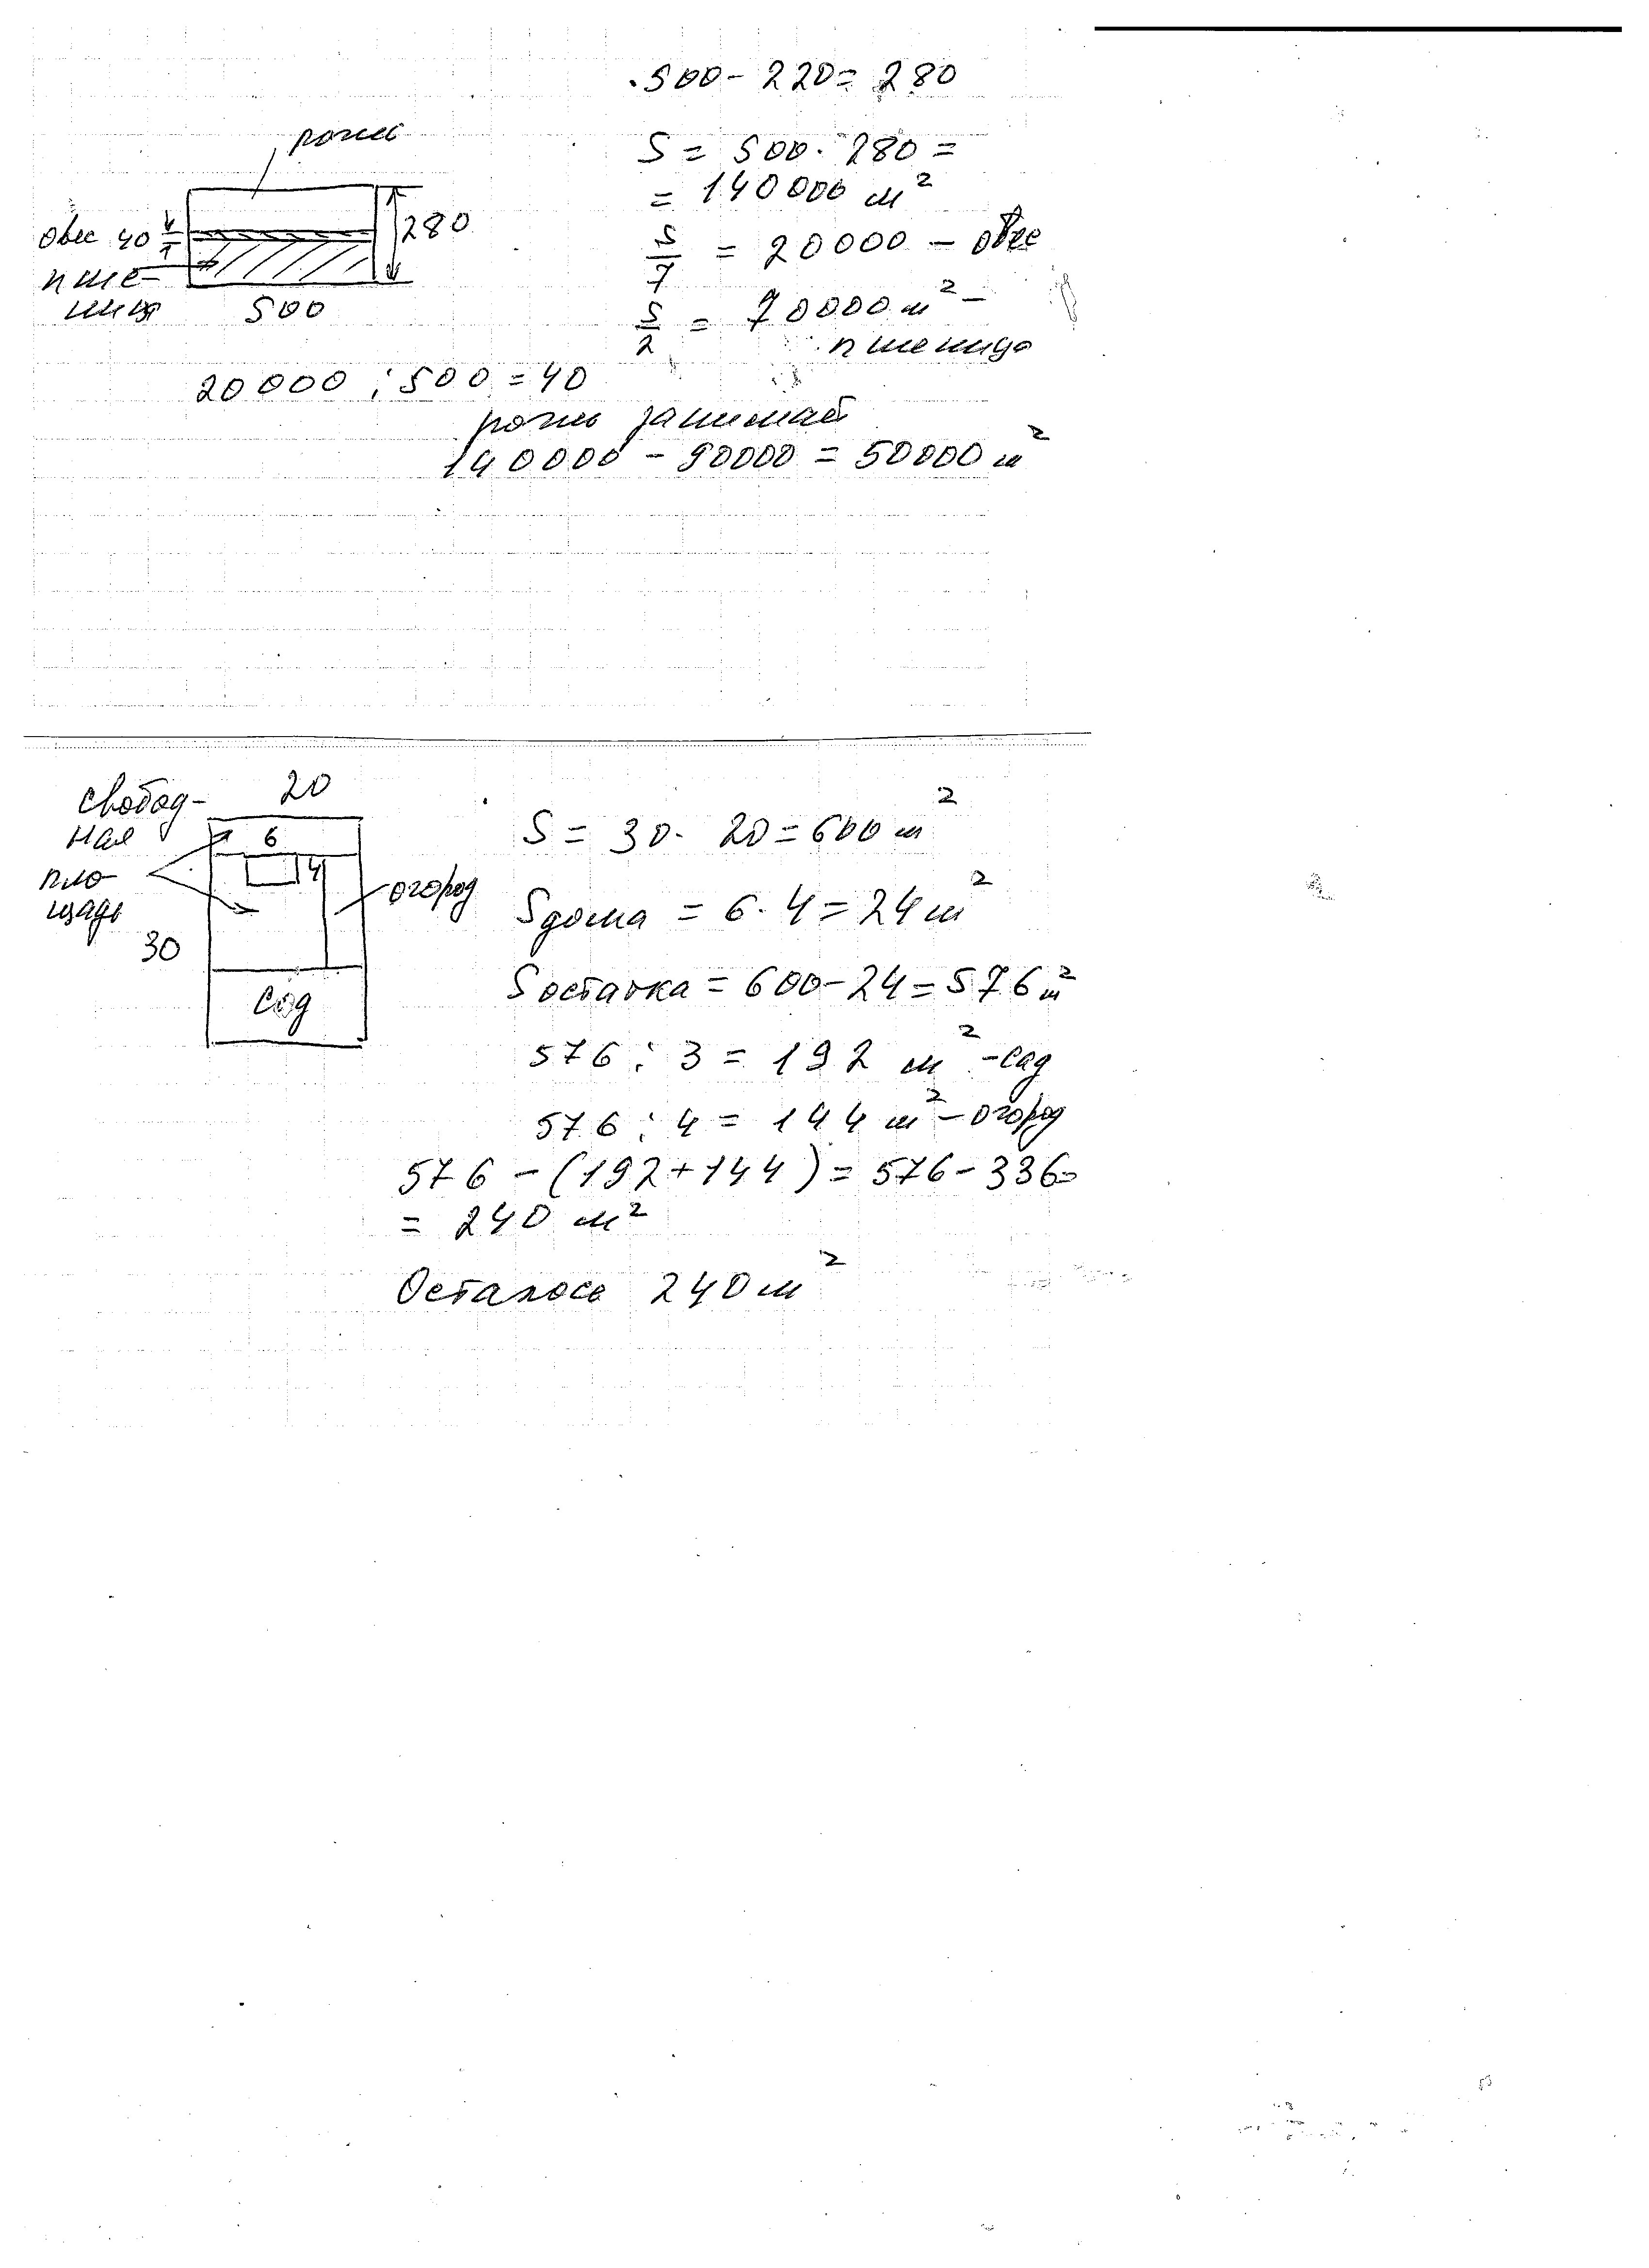 500 - 220 = 280
рожь
S = 500 · 280 =
= 140000 м²
овес 40
280
S/7 = 20000 - овес
пше-
ница
500
S/2 = 70000 м² -
пшеница
20000 : 500 = 40
рожь занимает
140000 - 90000 = 50000 м²
свобод-
ная
пло-
щадь
20
6
4
огород
30
сад
S = 30 · 20 = 600 м²
Sдома = 6 · 4 = 24 м²
Sостатка = 600 - 24 = 576 м²
576 : 3 = 192 м² - сад
576 : 4 = 144 м² - огород
576 - (192 + 144) = 576 - 336 =
= 240 м²
Осталось 240 м²